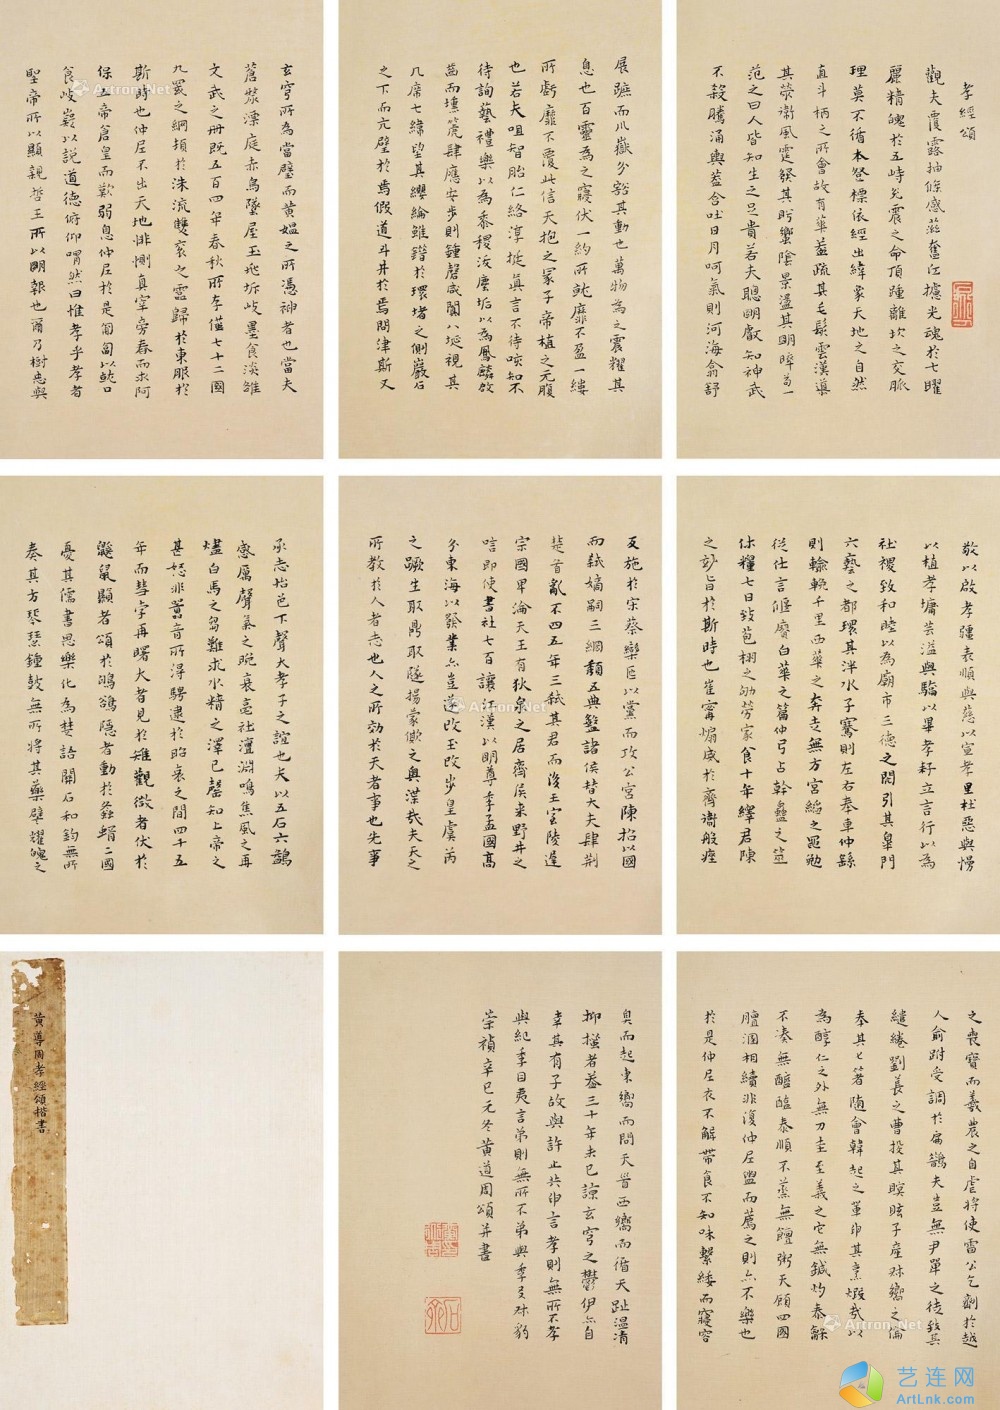 孝經頌
觀夫覆露抽條感蕊奮江攄光魂於七曜
麗精魄於五峙先震之命頂踵離坎之交脈
理莫不循本登標依經出緯象天地之自然
直斗柄之所會故有華蓋疏其毛髮雲漢導
其榮衛風霆發其眄蠻陰景盪其明暐為一
范之曰人皆知生之足貴若夫聰明獻知神武
不殺騰涌輿蓋含吐日月呵氣則河海翕舒
展蹠而川嶽分豁其動也萬物為之震耀其
息也百靈為之寢伏一約所純靡不盈一縷
所虧靡不覆此信天抱之冢子帝植之元腹
也若夫咀智胎仁絡淳挻真言不待咳知不
待詢藝禮樂以為黍稷汝塵垢以為鳳麟故
齒而壎篪肆應安步則鍾磬咸闡八埏視其
几席七緯望其纓綸雖鐕於環堵之側巖石
之下而亢壁於焉假道斗井於焉問津斯又
玄穹所為當璧而黃媼之所憑神者也當夫
蒼漦漂庭赤烏墜屋玉兆坼歧墨食淡雒
文武之冊既五百四年春秋所存僅七十二國
九罭之綱頹於洙流雙袞之靈歸於東郰於
斯時也仲尼不出天地悱惻真宰旁眷而求阿
保五帝倉皇而歎弱息仲尼於是匍匐以就口
食岐嶷以說道德俯仰喟然曰惟孝乎孝者
聖帝所以顯親哲王所以明報也爾乃樹忠與
敬以啟孝疆表順與慈以宣孝里杜惡與慢
以植孝墉芸溢與驕以畢孝耔立言行以為
社禝致和睦以為廟市三德之閎引其皋門
六藝之都環其泮水子騫則左右奉車仲繇
則輸輓千里西華之奔走無方宮縚之黽勉
從仕言偃賡白華之篇仲弓占幹蠱之筮
休糧七日致苞栩之劬勞家食十年繹君陳
之妙旨於斯時也崔甯煽威於齊衛般痤
反施於宋蔡欒匹以黨而攻公宮陳招以國
而弒嫡嗣三綱類五典盭諸侯替大夫肆荆
楚首亂不四五年三弒其君而後王室陵遲
宗國畢淪天王有狄泉之居齊侯來野井之
唁即使書社七百讓江漢以明尊季孟國高
分東海以發業亦豈遂改玉改步皇虞芮
之蹶生取鼎取隧揚蒙俶之輿渫哉夫天之
所教於人者志也人之所効於天者事也先事
承志怡色下聲大孝子之誼也夫以五石六鷁
愈厲聲氣之晼衰亳社澶淵鳴焦風之再
燼白馬之芻難求水精之澤已罄知上帝之
甚怒非薈音所得騁逮於昭哀之間四十五
年而彗孛再曙大者見於雉觀微者伏於
鼷鼠顯者頌於鴝鵒隱者動於螽蜎二國
憂其儒書思樂化為楚語關石和鈞無所
奏其方琴瑟鍾鼓無所將其藥壁耀魄之
之喪寶而羲農之自虐將使雷公乞劀於越
人俞跗受調於扁鵲夫豈無尹單之徒致其
繾綣劉萇之曹投其瞑眩子產叔嚮之倫
奉其匕箸隨會韓起之軍申其烹煅哉以
為醇仁之外無刀圭至義之它無鍼灼泰龢
不湊無醯醢泰順不蒸無饘粥天顧四國
膻涸相續非復仲尼盥而薦之則亦不樂也
於是仲尼衣不解帶食不知味繫緌而寢容
臭而起東嚮而問天晉西嚮而循天趾溫凊
抑搔者蓋三十年未已諒玄穹之鬱伊亦自
幸其有子故與許止共申言孝則無所不孝
與紀季目夷言弟則無所不弟與季友叔豹
崇禎辛巳元冬黃道周頌并書
黃尊周孝經頌楷書
Artron.Net
艺连网
ArtLnk.com